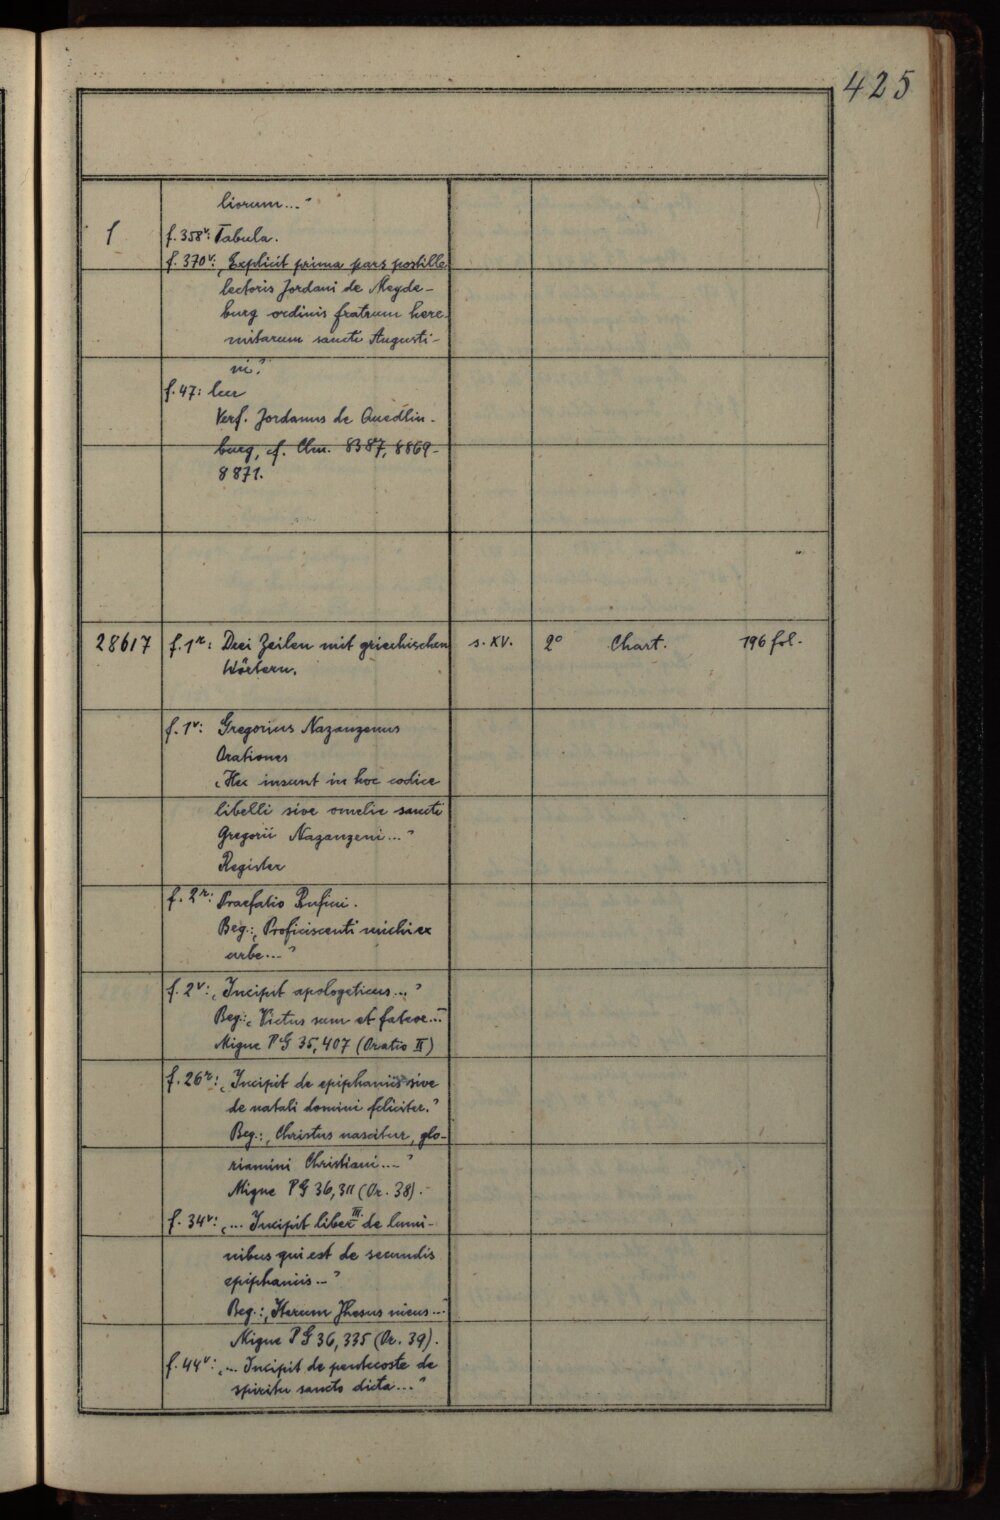 425
liorum..."
f. 358v: Tabula.
f. 370v: „Explicit prima pars postille
lectoris Jordani de Meyde-
burg ordinis fratrum here-
mitarum sancti Augusti-
ni."
f. 47: leer
Verf. Jordanus de Quedlin-
burg, cf. Clm. 8387, 8869-
8871.
28617 f. 1r: Drei Zeilen mit griechischen s. XV. 2° Chart. 196 fol.
Wörtern.
f. 1v: Gregorius Nazanzenus
Orationes
„Hec insunt in hoc codice
libelli sive omelie sancti
Gregorii Nazanzeni..."
Register
f. 2r: Praefatio Rufini.
Beg.: „Proficiscenti michi ex
urbe..."
f. 2v: „Incipit apologeticus..."
Beg.: „Victus sum et fateor..."
Migne PG 35, 407 (Oratio II)
f. 26r: „Incipit de epiphaniis sive
de natali domini feliciter."
Beg.: „Christus nascitur, glo-
riamini Christiani..."
Migne PG 36, 311 (Or. 38).
f. 34v: „... Incipit liber III. de lumi-
nibus qui est de secundis
epiphaniis..."
Beg.: „Iterum Jhesus meus..."
Migne PG 36, 335 (Or. 39).
f. 44v: „... Incipit de pentecoste de
spiritu sancto dicta..."